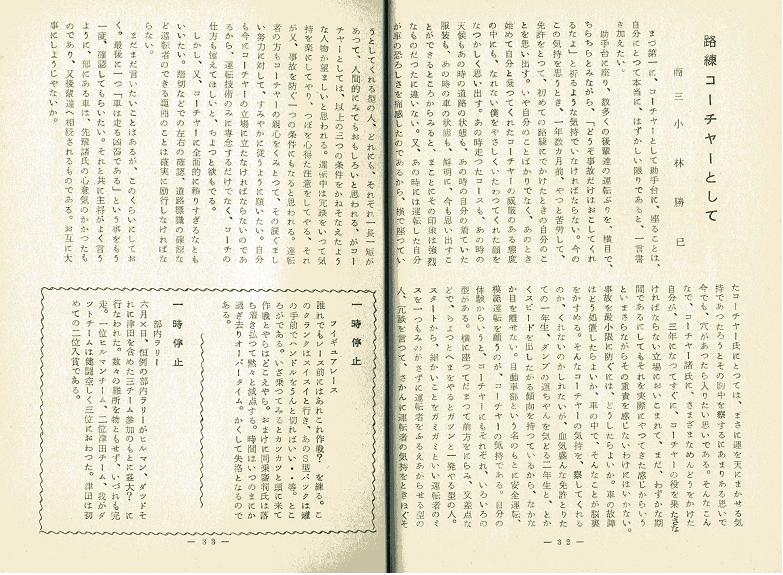 路練コーチャーとして
商三 小林勝巳
まづ第一に、コーチャーとして助手台に、座ることは、
自分にとって本当に、はずかしい限りであると、一言書
き加えたい。
助手台に座り、数多くの後輩達の運転ぶりを、横目で、
ちらちらとみながら、「どうぞ事故だけはおこしてくれ
るなよ」と祈るような気持でいなければならない。今の
この気持を思うとき、一年数カ月前、やつと苦労して、
免許をとって、初めての路練にでかけたときの自分のこ
とを思い出す。いや自分のことばかりでなく、あのとき
始めて自分と乗つてくれたコーチャーの威厳のある態度
の中にも、なれない僕をやさしくいたわつてくれた顔を
なつかしく思い出す。あの時走つたコースも、あの時の
天候もあの時の道路の状態も、あの時の自分の着ていた
服装も、あの時の車の状態も、鮮明に、今も思い出すこ
とができるところからみると、まことにその印象は強烈
なものだったに違いない。又、あの時には運転した自分
が車の恐ろしさを痛感したのであるから、横で座つてい
たコーチャー氏にとつては、まさに運を天にまかせる気
持であつたろうとその胸中を察するにあまりある思いで
今でも、穴があつたら入りたい思いである。そんなこん
なで、コーチャー諸氏に、さまざまめんどうをかけた
自分が、三年になつてすぐに、コーチャーの役を果たさな
ければならない立場においこまれて、まだ、わずかな期
間であるにしてもそれを実際にやつてきた感じからいう
といまさらながらその重責を感じないわけにはいかない。
事故を最小限に防ぐには、どうしたらよいか。車の故障
はどう処置したらよいか、車の中で、そんなことが脳裏
をかすめる。そんなコーチャーの気持を、察してくれる
のか、くれないのかしれないが、血気盛んな免許とりた
ての一年生、ダンプの運ちやんを気どる二年生と、とか
くスピードを出したがる傾向を持つているから、なかな
か目を離せない。自動車部という名のもとに安全運転、
模範運転を願うのが、コーチャーの気持である。自分の
体験からいうと、コーチャーにもそれぞれ、いろいろの
型がある。横に座つてだまつて前方をにらみ、交差点な
どで、ちよつとヘまをやるとガツンと一発やる型の人。
スタートから、細かいことをガミガミといい運転者のミ
スを一つものがさずに運転者をふるえあがらせる型の
人、冗談を言つて、さかんに運転者の気持をときほぐそ
— 32 —
うとしてくれる型の人、どれにも、それぞれ一長一短が
あつて、人間的にみてもおもしろいと思われる、がコー
チャーとしては、以上の三つの条件をかねそなえたよう
な人物が望ましいと思われる。運転中は冗談をいつて気
持を楽にしてやり、つぼを心得た注意をしてやる、それ
が又、事故を防ぐ一つの条件にもなると思われる。運転
者の方もコーチャーの親心をくみとつて、その涙ぐまし
い努力に対して、すみやかに従うように願いたい。自分
も今にコーチャーの立場に立たなければならないのであ
るから、運転技術のみに専念するだけでなく、コーチの
仕方も憶えてほしいと、ちよつと欲もでる。
しかし、又、コーチャーに全面的に頼りすぎるなとも
いいたい。踏切などでの左右の確認、道路標識の確認な
ど運転者のできる範囲のことは確実に励行しなければな
らない。
まだまだ言いたいことはあるが、このくらいにしてお
く。最後に一つ「車は走る凶器である」という事をもう
一度、確認してもらいたい。それと共に主将がよく言う
ように、部にある車は、先飛諸氏の心意気のかかつたも
のであり、又後輩達へ相続されるものである。お互に大
事にしようじやないか。
一時停止
フィギュアレース
誰れでもレース前にはあれこれ作戦?を練る。こ
のクランクはスイスイと行き、あのS型バックは縄
の手前でハンドルをうんと切ればいい・・等。とこ
ろがである。いざ乗つてみるとカツカツと頭に来て
作戦とやらはどこえやら。おまけに同乗審判氏は落
ち着き払つて黙々と減点する。時間はいつのまにか
過ぎ去りオーバータイム。かくして失格となるので
ある。
一時停止
部内ラリー
六月×日、恒例の部内ラリーがヒルマン、ダツドそ
れに津田を含めた三チーム参加のもとに盛大?に
行なわれた。数々の難所を物ともせず、いづれも完
走。一位ヒルマンチーム、二位津田チーム、我がダ
ツトチームは健闘空しく三位におわつた。津田は初
めての二位入賞である。
— 33 —